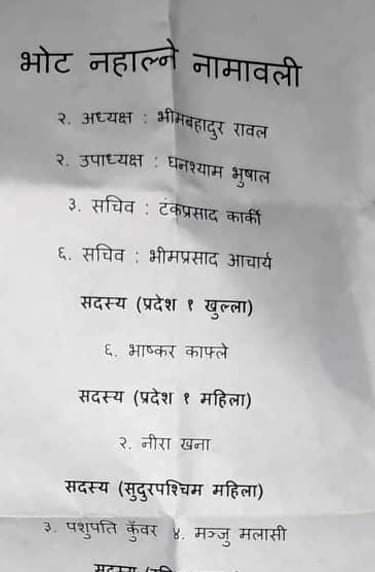 भोट नहाल्ने नामावली
२. अध्यक्ष : भीमबहादुर रावल
२. उपाध्यक्ष : घनश्याम भुषाल
३. सचिव : टंकप्रसाद कार्की
६. सचिव : भीमप्रसाद आचार्य
सदस्य (प्रदेश १ खुल्ला)
६. भाष्कर काफ्ले
सदस्य (प्रदेश १ महिला)
२. नीरा खना
सदस्य (सुदुरपश्चिम महिला)
३. पशुपति कुँवर ४. मञ्जु मलासी
सदस्य